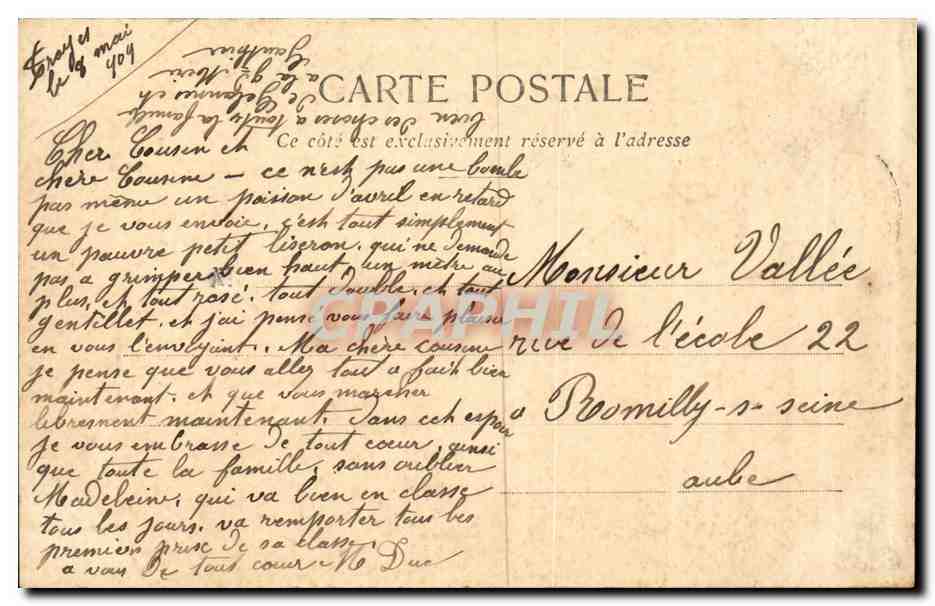 Troyes
le 8 mai
909
CARTE POSTALE
Ce côté est exclusivement réservé à l'adresse
bien des choses a toute la famille
de
a la
Cher Cousin et
chere Cousine - ce n'est pas une bombe
pas même un poisson d'avril en retard
que je vous envoie, c'est tout simplement
un pauvre petit liseron, qui ne demande
pas a grimper bien haut, un mètre au
plus, et tout rosé, tout double, et tout
gentillet, et j'ai pensé vous faire plaisir
en vous l'envoyant. Ma chere cousine
je pense que vous allez tout a fait bien
maintenant, et que vous marcher
librement maintenant, dans cet espoir
je vous embrasse de tout cœur, ainsi
que toute la famille, sans oublier
Madeleine, qui va bien en classe
tous les jours, va remporter tous les
premiers prix de sa classe,
a vous de tout cœur M Duc
Monsieur Vallée
rue de l'école 22
a Romilly-s-seine
aube
GRAPHIL